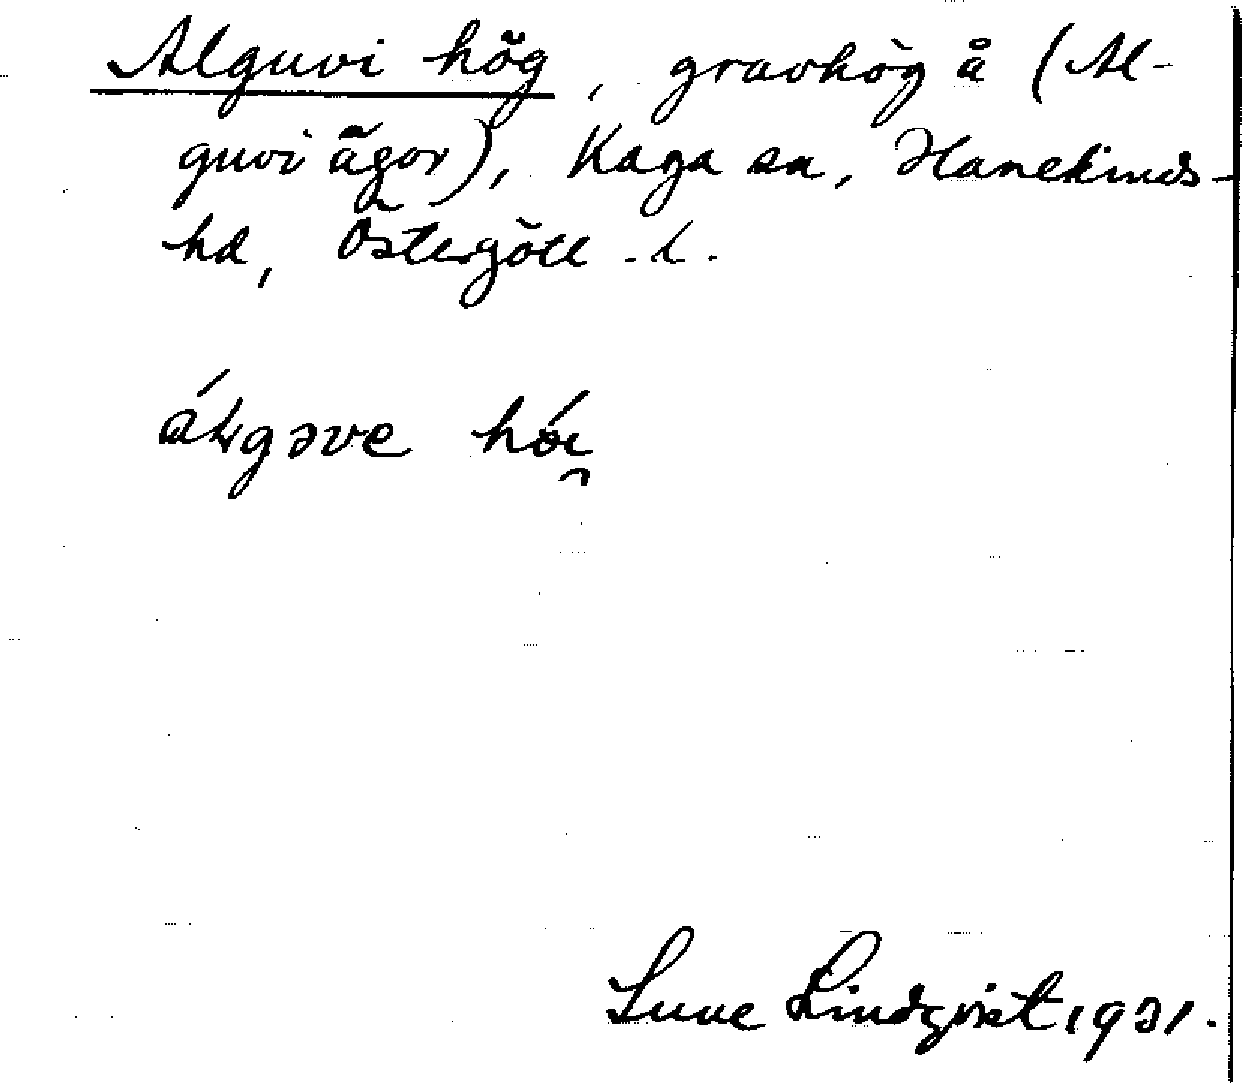 Alguvi hög, gravhög å (Al-
guvi ägor), Kaga sn, Hanekinds-
hd, Östergötl. l.
hói
Sune Lindqvist 1931.